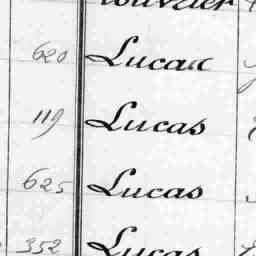 620 Lucas
119 Lucas
625 Lucas
352 Lucas